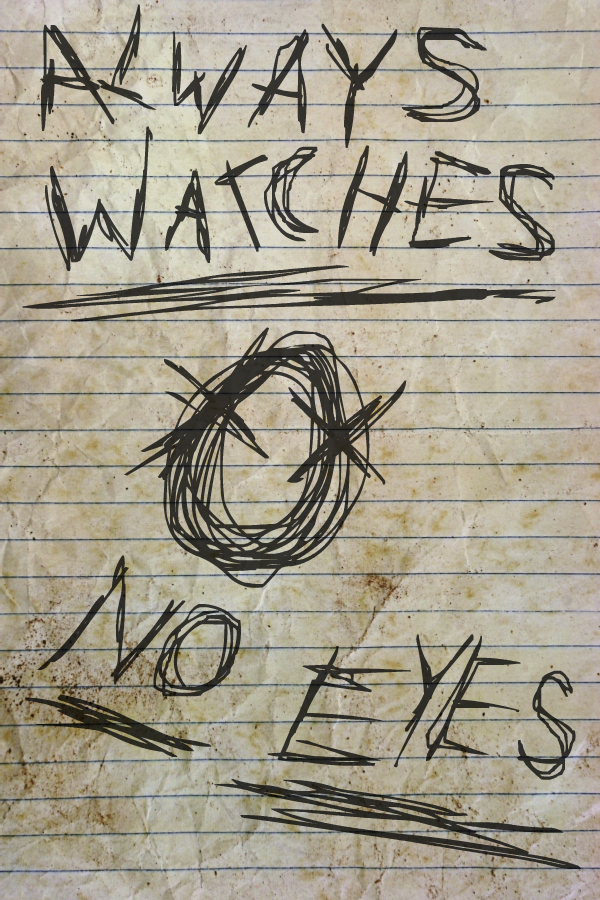 ALWAYS
WATCHES
NO
EYES